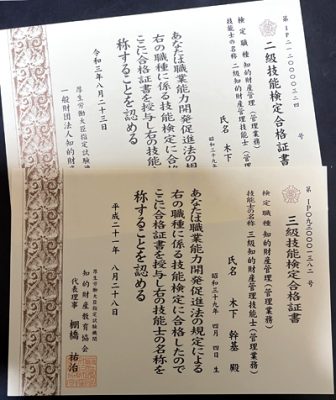 二級技能検定合格証書
検定職種 知的財産管理(管理業務)
技能士の名称 二級知的財産管理技能士(管理業務)
氏名 木下
昭和三十九年
あなたは職業能力開発促進法の規
右の職種に係る技能検定に合格
ここに合格証書を授与し右の技能
称することを認める
令和三年八月二十三日
厚生労働大臣指定試験機
一般財団法人知的財
三級技能検定合格証書
検定職種 知的財産管理(管理業務)
技能士の名称 三級知的財産管理技能士(管理業務)
氏名 木下 幹基 殿
昭和三十九年 四月 四日 生
あなたは職業能力開発促進法の規定による
右の職種に係る技能検定に合格したので
ここに合格証書を授与し右の技能士の名称を
称することを認める
平成二十一年 八月二十八日
厚生労働大臣指定試験機関
知的財産教育協会
代表理事 棚橋 祐治